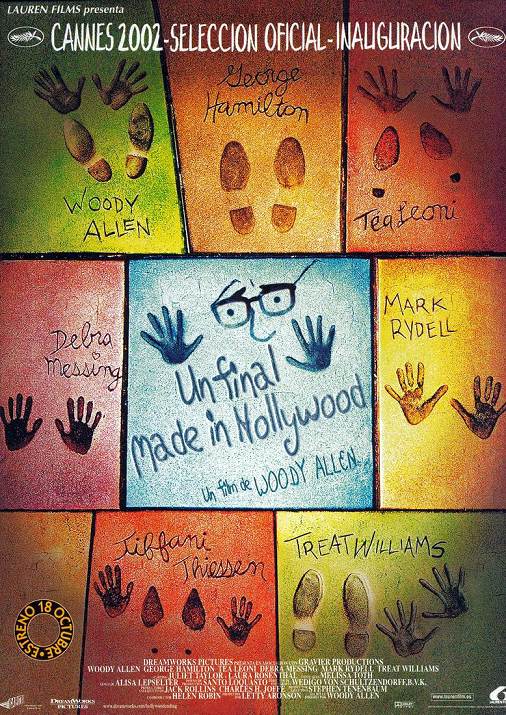 LAUREN FILMS presenta
CANNES 2002-SELECCION OFICIAL-INAUGURACION
WOODY
ALLEN
George
Hamilton
Téa Leoni
Debra
Messing
Un final
made in Hollywood
un film de WOODY ALLEN.
MARK
RYDELL
Tiffani
Thiessen
TREAT WILLIAMS
ESTRENO 18 OCTUBRE
DREAMWORKS PICTURES PRESENTA EN ASOCIACION CON GRAVIER PRODUCTIONS
WOODY ALLEN GEORGE HAMILTON TEA LEONI DEBRA MESSING MARK RYDELL TREAT WILLIAMS
JULIET TAYLOR LAURA ROSENTHAL MELISSA TOTH
ALISA LEPSELTER SANTO LOQUASTO WEDIGO VON SCHULTZENDORFF, B.V.K.
JACK ROLLINS CHARLES H. JOFFE STEPHEN TENENBAUM
HELEN ROBIN LETTY ARONSON WOODY ALLEN
DREAMWORKS
PICTURES
www.dreamworks.com/hollywoodending
DOLBY
www.laurenfilm.es